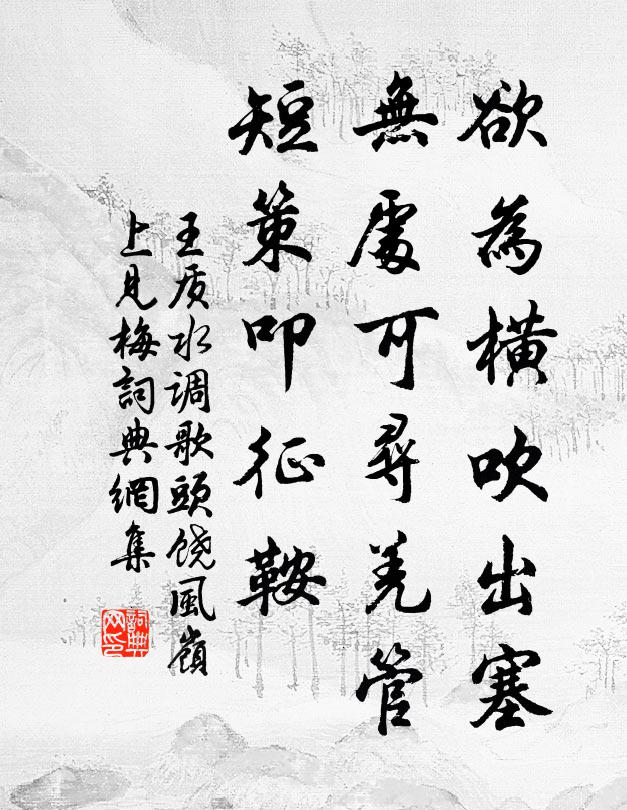 欲為橫吹出塞
無處可尋羌管
短策叩征鞍
王质水调歌頭饶風嶺
上見梅詞典網集
詞典
网印